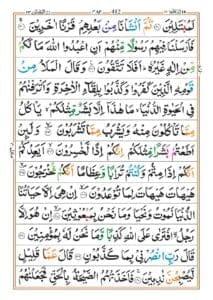 لَمُبْتَلِيْنَ ۝ ثُمَّ اَنْشَاْنَا مِنْۢ بَعْدِهِمْ قَرْنًا اٰخَرِيْنَ ۝
فَاَرْسَلْنَا فِيْهِمْ رَسُوْلًا مِّنْهُمْ اَنِ اعْبُدُوا اللّٰهَ مَا لَكُمْ
مِّنْ اِلٰهٍ غَيْرُهٗ ؕ اَفَلَا تَتَّقُوْنَ ۝ وَقَالَ الْمَلَاُ مِنْ
قَوْمِهِ الَّذِيْنَ كَفَرُوْا وَكَذَّبُوْا بِلِقَآءِ الْاٰخِرَةِ وَاَتْرَفْنٰهُمْ
فِي الْحَيٰوةِ الدُّنْيَا ۙ مَا هٰذَاۤ اِلَّا بَشَرٌ مِّثْلُكُمْ ۙ يَاْكُلُ
مِمَّا تَاْكُلُوْنَ مِنْهُ وَيَشْرَبُ مِمَّا تَشْرَبُوْنَ ۝ وَلَئِنْ
اَطَعْتُمْ بَشَرًا مِّثْلَكُمْ ۙ اِنَّكُمْ اِذًا لَّخٰسِرُوْنَ ۝ اَيَعِدُكُمْ
اَنَّكُمْ اِذَا مِتُّمْ وَكُنْتُمْ تُرَابًا وَّعِظَامًا اَنَّكُمْ مُّخْرَجُوْنَ ۝
هَيْهَاتَ هَيْهَاتَ لِمَا تُوْعَدُوْنَ ۝ اِنْ هِيَ اِلَّا حَيَاتُنَا
الدُّنْيَا نَمُوْتُ وَنَحْيَا وَمَا نَحْنُ بِمَبْعُوْثِيْنَ ۝ اِنْ هُوَ اِلَّا
رَجُلُ ۨ افْتَرٰى عَلَى اللّٰهِ كَذِبًا وَّمَا نَحْنُ لَهٗ بِمُؤْمِنِيْنَ ۝
قَالَ رَبِّ انْصُرْنِيْ بِمَا كَذَّبُوْنِ ۝ قَالَ عَمَّا قَلِيْلٍ
لَّيُصْبِحُنَّ نٰدِمِيْنَ ۝ فَاَخَذَتْهُمُ الصَّيْحَةُ بِالْحَقِّ فَجَعَلْنٰهُمْ